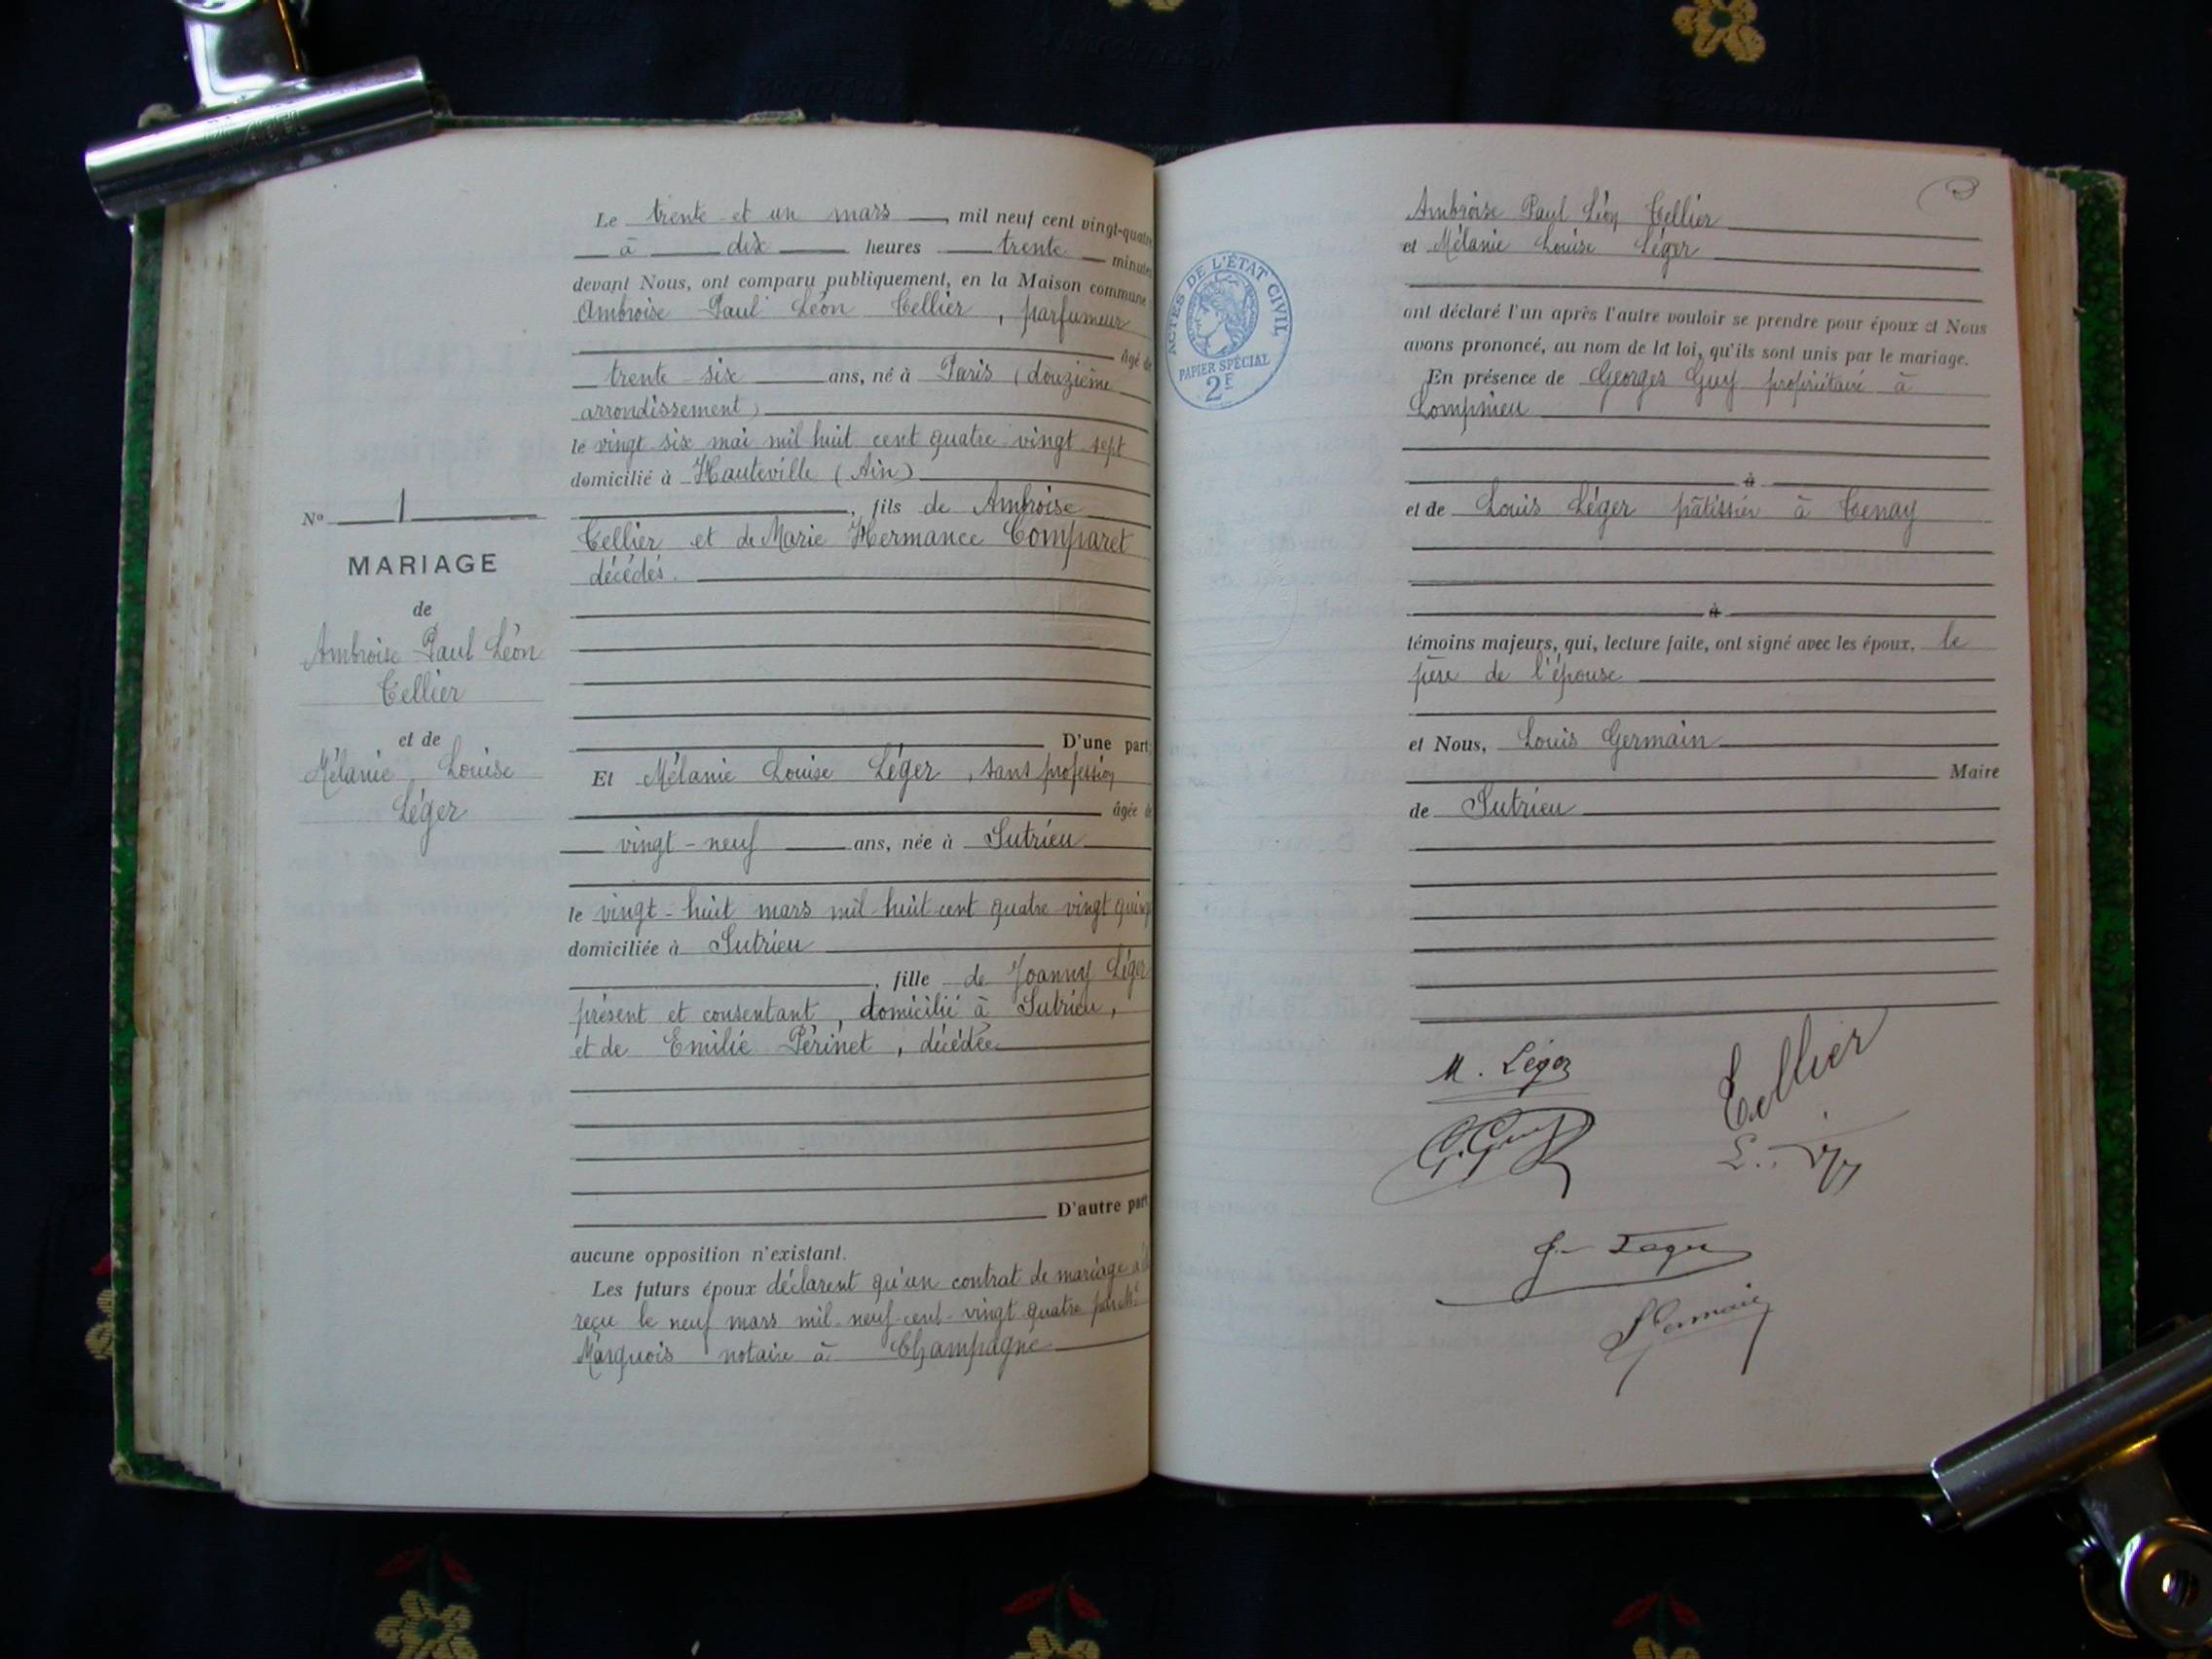 Le trente et un mars, mil neuf cent vingt-quatre
à dix heures trente minutes
devant Nous, ont comparu publiquement, en la Maison commune
Ambroise Paul Léon Tellier, parfumeur
âgé de
trente-six ans, né à Paris (douzième
arrondissement)
le vingt six mai mil huit cent quatre vingt sept
domicilié à Hauteville (Ain)
, fils de Ambroise
Tellier et de Marie Hermance Comparet
décédés.
D'une part;
Et Mélanie Louise Léger, sans profession
âgée de
vingt-neuf ans, née à Sutrieu
le vingt-huit mars mil huit cent quatre vingt quinze
domiciliée à Sutrieu
, fille de Joanny Léger
présent et consentant, domicilié à Sutrieu,
et de Emilie Périnet, décédée
D'autre part
aucune opposition n'existant.
Les futurs époux déclarent qu'un contrat de mariage a
reçu le neuf mars mil neuf cent vingt quatre par Me
Marquois notaire à Champagne
No 1
MARIAGE
de
Ambroise Paul Léon
Tellier
et de
Mélanie Louise
Léger
Ambroise Paul Léon Tellier
et Mélanie Louise Léger
ont déclaré l'un après l'autre vouloir se prendre pour époux et Nous
avons prononcé, au nom de la loi, qu'ils sont unis par le mariage.
En présence de Georges Guy propriétaire à
Lompnieu
à
et de Louis Léger pâtissier à Tenay
à
témoins majeurs, qui, lecture faite, ont signé avec les époux, le
père de l'épouse
et Nous, Louis Germain
Maire
de Sutrieu
ACTES DE L'ÉTAT CIVIL
PAPIER SPÉCIAL
2F
M. Léger
Tellier
G. Guy
L Germain